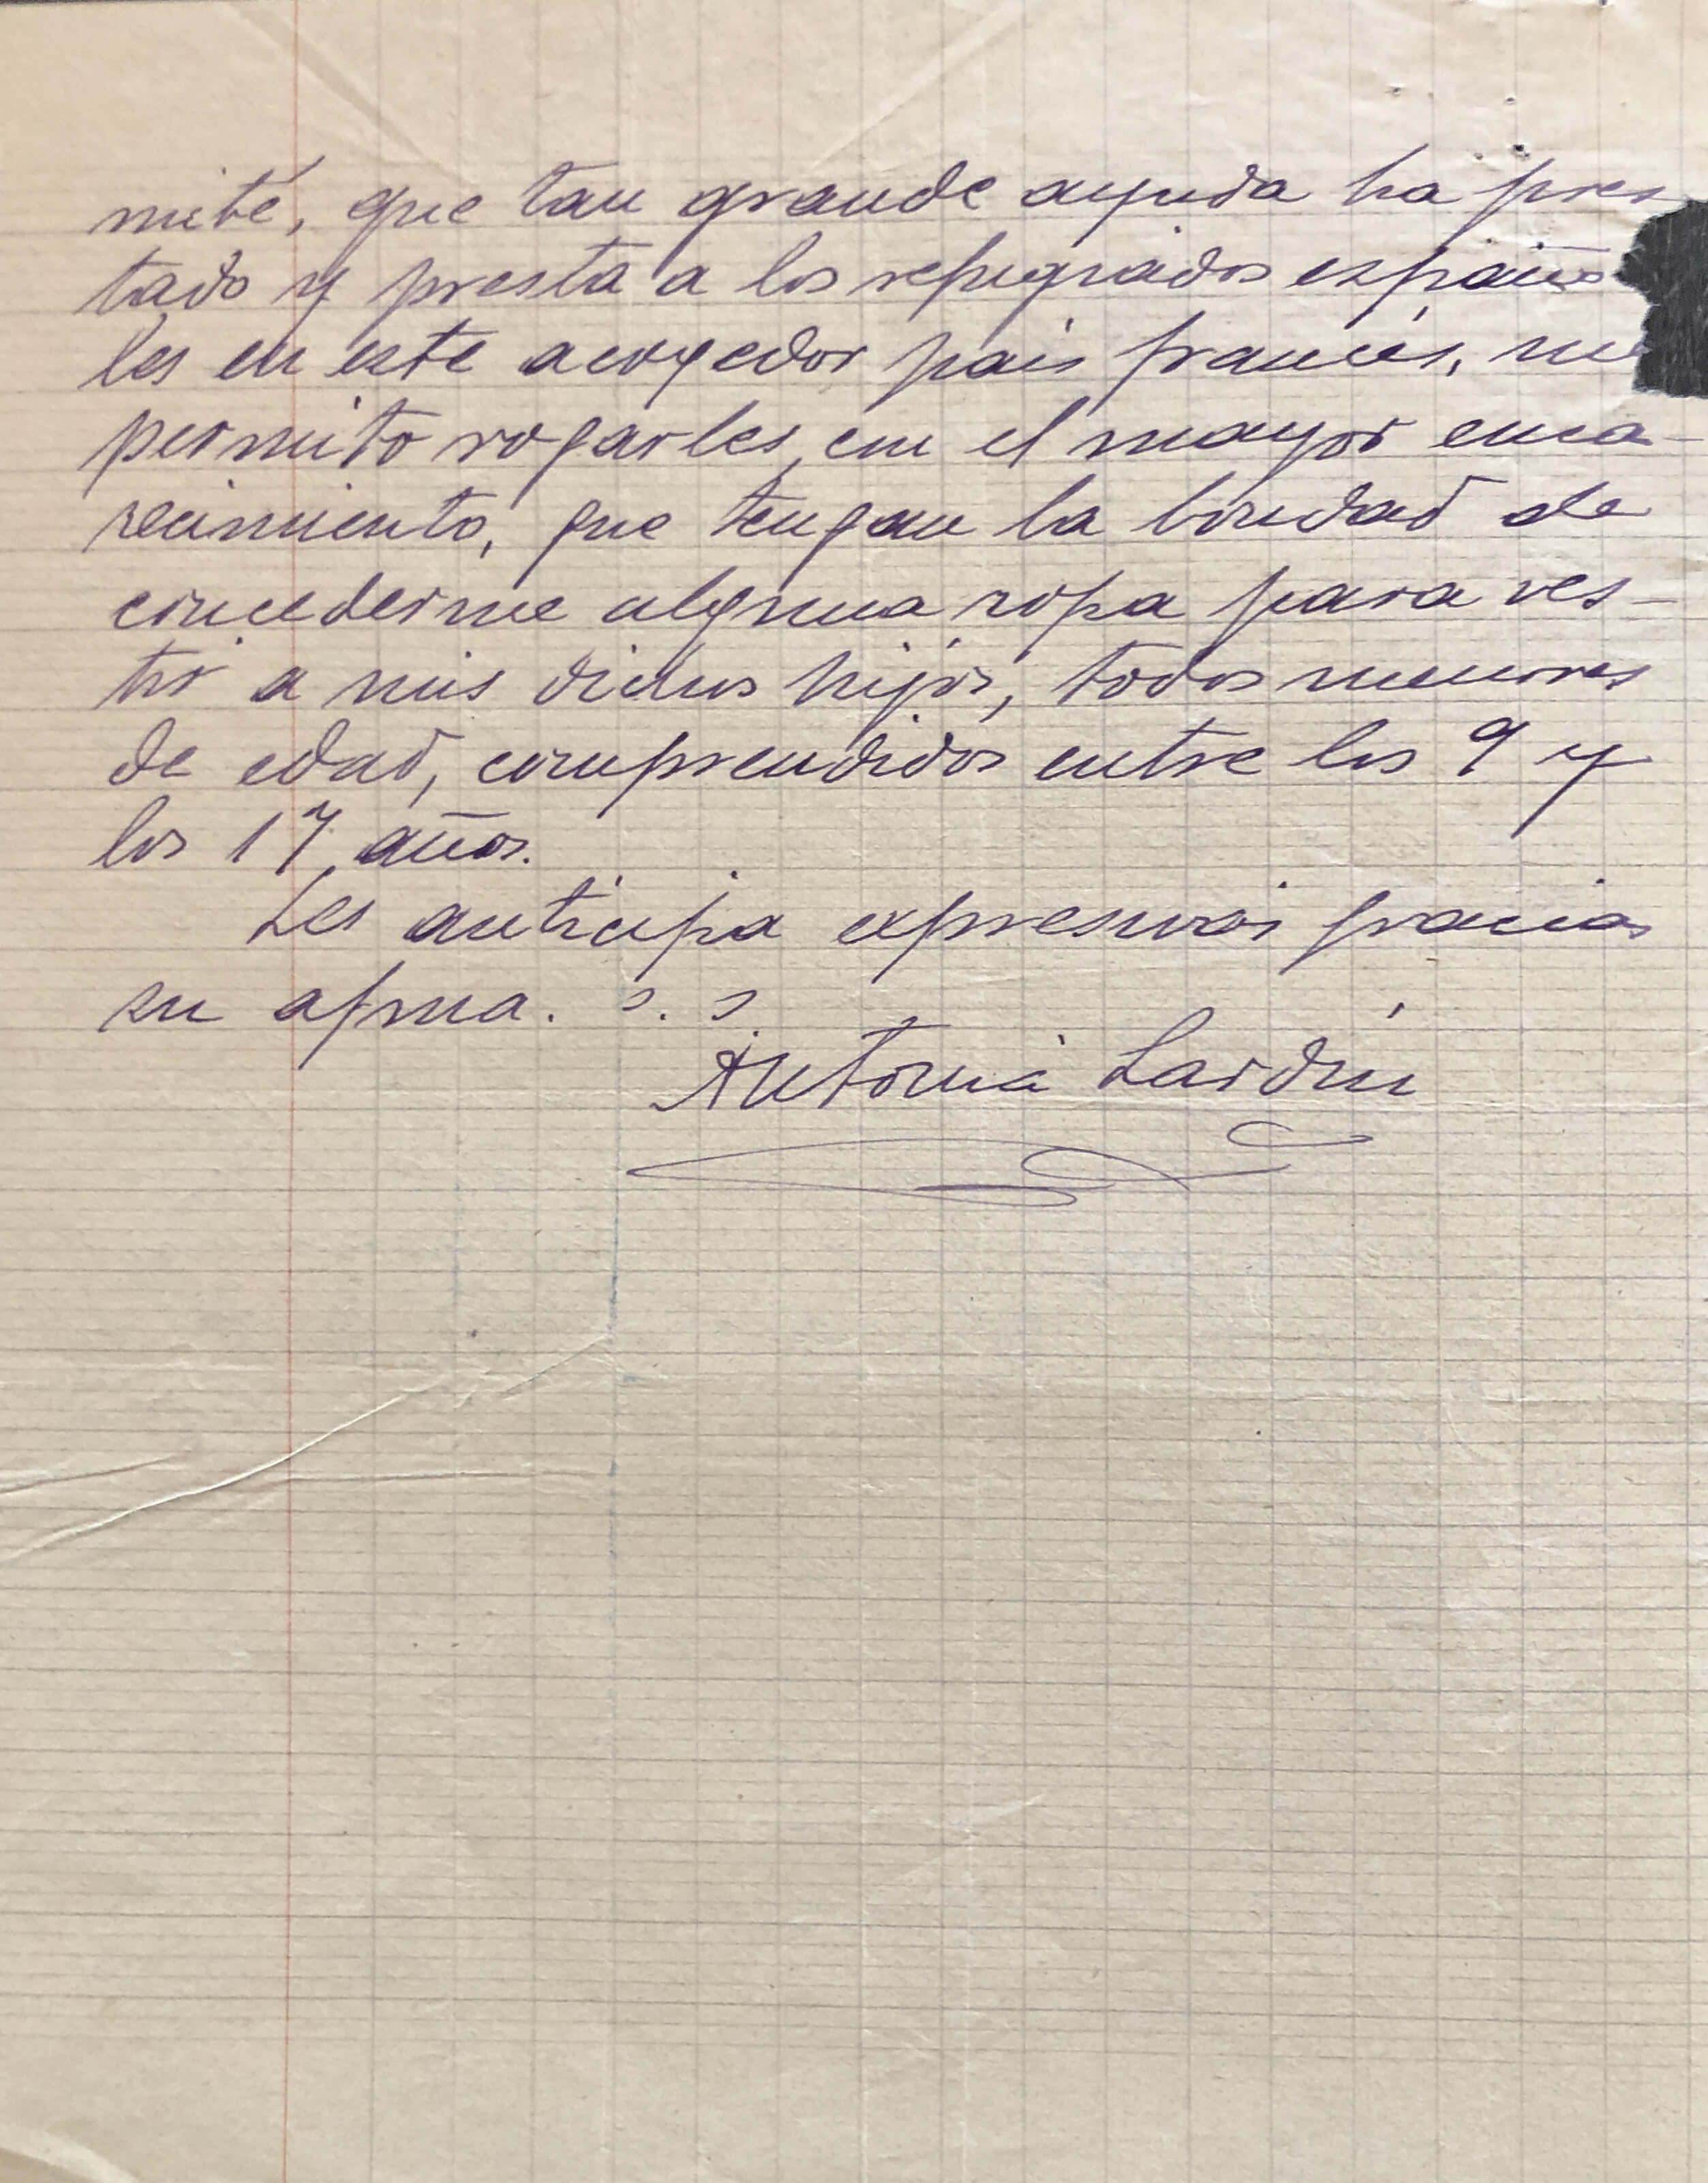 mité, que tan grande ayuda ha pres
tado y presta a los refugiados españo
les en este acogedor pais francés, me
permito rogarles, con el mayor enca-
recimiento, que tengan la bondad de
concederme alguna ropa para ves-
tir a mis dichos hijos, todos menores
de edad, comprendidos entre los 9 y
los 17 años.
Les anticipa expresivas gracias
su afma. s. s.
Antonia Lardín